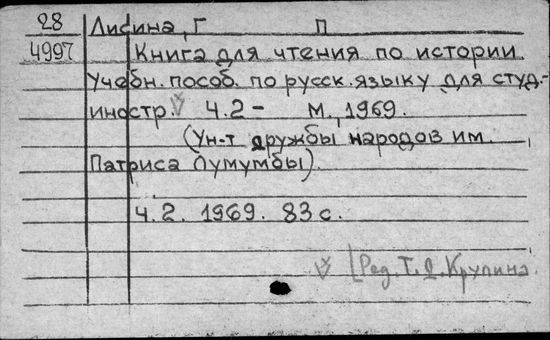 28 Лисина, Г П
4997 Книга для чтения по истории
Учебн. пособ. по русск. языку для студ.-
иностр. Ч.2 – М., 1969.
(Ун-т дружбы народов им.
Патриса Лумумбы).
Ч.2. 1969. 83 с.
[Ред. Т. Я. Крупина.